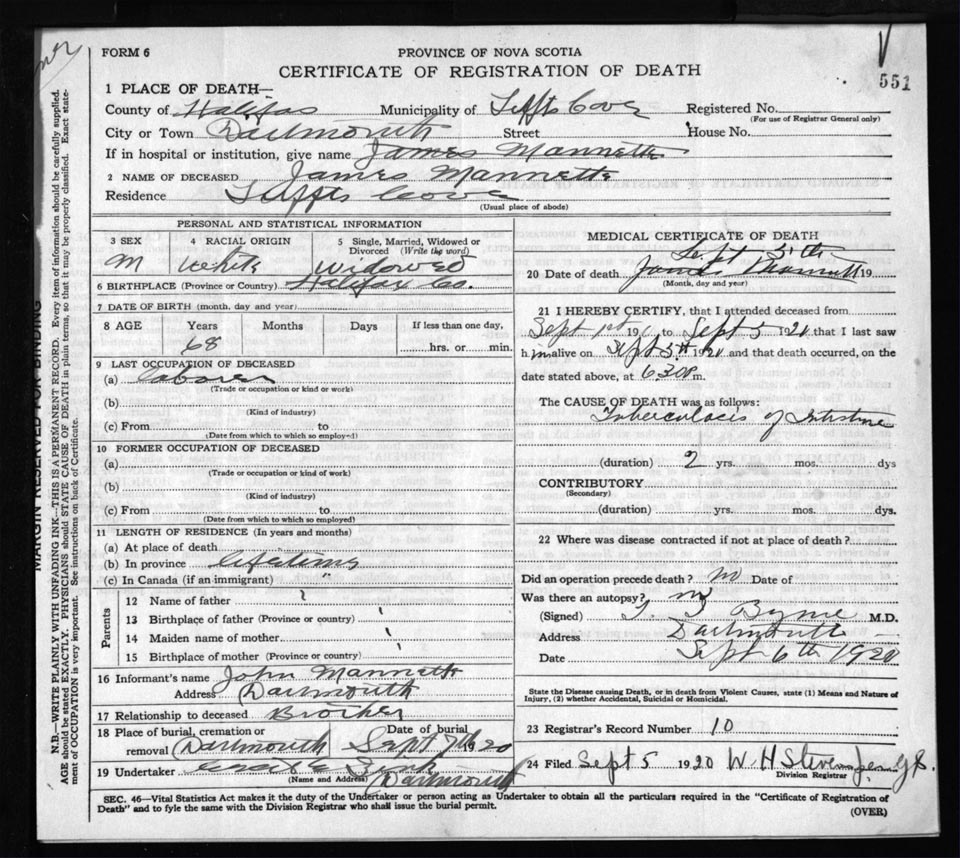 FORM 6
PROVINCE OF NOVA SCOTIA
CERTIFICATE OF REGISTRATION OF DEATH
551
1 PLACE OF DEATH—
County of Halifax Municipality of Tuffts Cove Registered No.
(For use of Registrar General only)
City or Town Dartmouth Street House No.
If in hospital or institution, give name James Mannette
2 NAME OF DECEASED James Mannette
Residence Tuffts Cove
(Usual place of abode)
PERSONAL AND STATISTICAL INFORMATION
3 SEX 4 RACIAL ORIGIN 5 Single, Married, Widowed or Divorced (Write the word)
M White Widowed
6 BIRTHPLACE (Province or Country) Halifax Co.
7 DATE OF BIRTH (month, day and year)
8 AGE Years Months Days If less than one day,
68 hrs. or min.
9 LAST OCCUPATION OF DECEASED
(a) Laborer
(Trade or occupation or kind of work)
(b)
(Kind of industry)
(c) From to
(Date from which to which so employed)
10 FORMER OCCUPATION OF DECEASED
(a)
(Trade or occupation or kind of work)
(b)
(Kind of industry)
(c) From to
(Date from which to which so employed)
11 LENGTH OF RESIDENCE (In years and months)
(a) At place of death
(b) In province lifetime
(c) In Canada (if an immigrant) "
Parents
12 Name of father ?
13 Birthplace of father (Province or country)
14 Maiden name of mother
15 Birthplace of mother (Province or country)
16 Informant's name John Mannette
Address Dartmouth
17 Relationship to deceased Brother
18 Place of burial, cremation or Date of burial
removal Dartmouth Sept 7th 1920
19 Undertaker
(Name and Address) Dartmouth
MEDICAL CERTIFICATE OF DEATH
Sept 5th
20 Date of death James Mannett 19
(Month, day and year)
21 I HEREBY CERTIFY, that I attended deceased from
Sept 1st 19 to Sept 5 1920 that I last saw
him alive on Sept 5th 1920 and that death occurred, on the
date stated above, at 6.30 P m.
The CAUSE OF DEATH was as follows:
Tuberculosis of Intestine
(duration) 2 yrs. mos. dys
CONTRIBUTORY
(Secondary)
(duration) yrs. mos. dys.
22 Where was disease contracted if not at place of death?
Did an operation precede death? no Date of
Was there an autopsy? no
(Signed) Byrne M.D.
Address Dartmouth
Date Sept 6th 1920
State the Disease causing Death, or in death from Violent Causes, state (1) Means and Nature of
Injury, (2) whether Accidental, Suicidal or Homicidal.
23 Registrar's Record Number 10
24 Filed Sept 5 1920 W. H. Stevens
Division Registrar
SEC. 46—Vital Statistics Act makes it the duty of the Undertaker or person acting as Undertaker to obtain all the particulars required in the "Certificate of Registration of
Death" and to fyle the same with the Division Registrar who shall issue the burial permit.
(OVER)
MARGIN RESERVED FOR BINDING
N.B—WRITE PLAINLY WITH UNFADING INK—THIS IS A PERMANENT RECORD. Every item of information should be carefully supplied.
AGE should be stated EXACTLY. PHYSICIANS should STATE CAUSE OF DEATH in plain terms, so that it may be properly classified. Exact statement of OCCUPATION is very important. See instructions on back of Certificate.